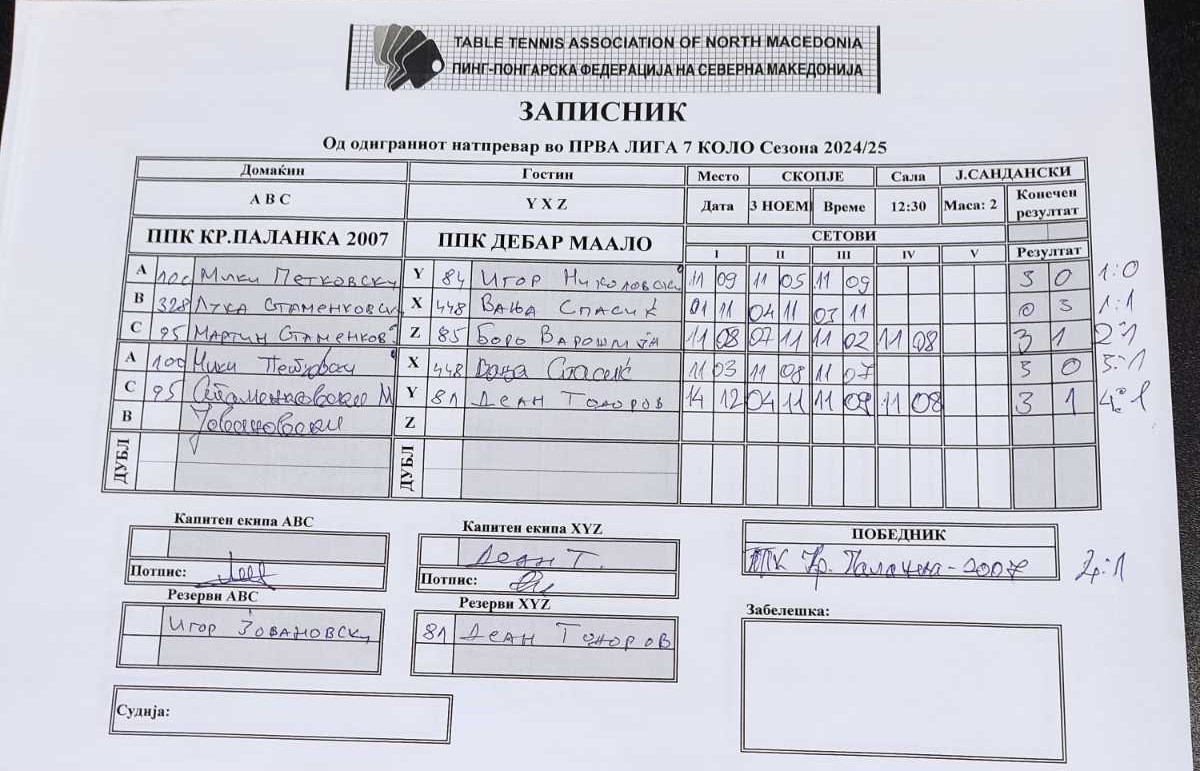 TABLE TENNIS ASSOCIATION OF NORTH MACEDONIA
ПИНГ-ПОНГАРСКА ФЕДЕРАЦИЈА НА СЕВЕРНА МАКЕДОНИЈА
ЗАПИСНИК
Од одиграниот натпревар во ПРВА ЛИГА 7 КОЛО Сезона 2024/25
Домаќин Гостин Место СКОПЈЕ Сала Ј.САНДАНСКИ
А В С Y X Z Дата 3 НОЕМ Време 12:30 Маса: 2 Конечен резултат
ППК КР.ПАЛАНКА 2007 ППК ДЕБАР МААЛО СЕТОВИ
I II III IV V Резултат
A 100 Мики Петковски Y 84 Игор Николовски 11 09 11 05 11 09 3 0 1:0
B 328 Лука Стаменковски X 448 Вања Спасиќ 01 11 04 11 03 11 0 3 1:1
C 95 Мартин Стаменков Z 85 Боро 11 08 07 11 11 02 11 08 3 1 2:1
A 100 Мики Петковски X 448 Вања Спасиќ 11 03 11 08 11 07 3 0 3:1
C 95 Стаменковски М Y 81 Деан Тодоров 14 12 04 11 11 09 11 08 3 1 4:1
B Јовановски Z
ДУБЛ ДУБЛ
Капитен екипа ABC Капитен екипа XYZ ПОБЕДНИК
Деан Т. ППК Кр. Паланка - 2007 4:1
Потпис: Потпис:
Резерви ABC Резерви XYZ Забелешка:
Игор Јовановски 81 Деан Тодоров
Судија: